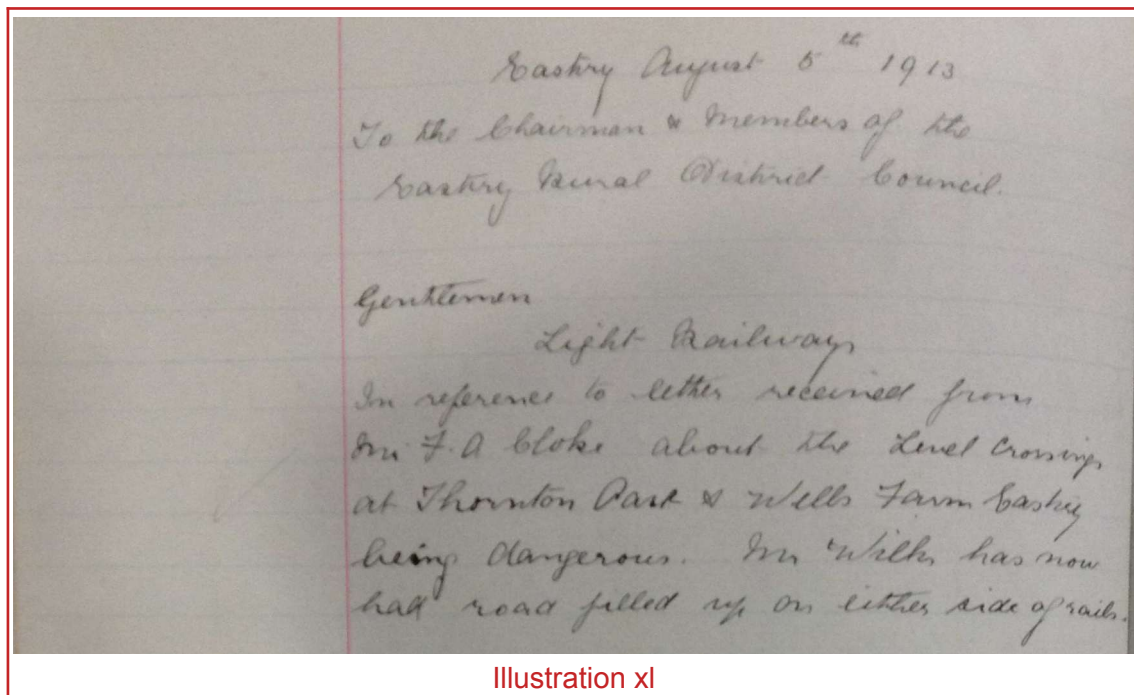 Eastry August 5th 1913
To the Chairman & Members of the
Eastry Rural District Council.
Gentlemen
Light Railways
In reference to letter received from
Mr F. A Cloke about the Level Crossings
at Thornton Park & Wells Farm Eastry
being dangerous. Mr Wilks has now
had road filled up on either side of rails.
Illustration xl